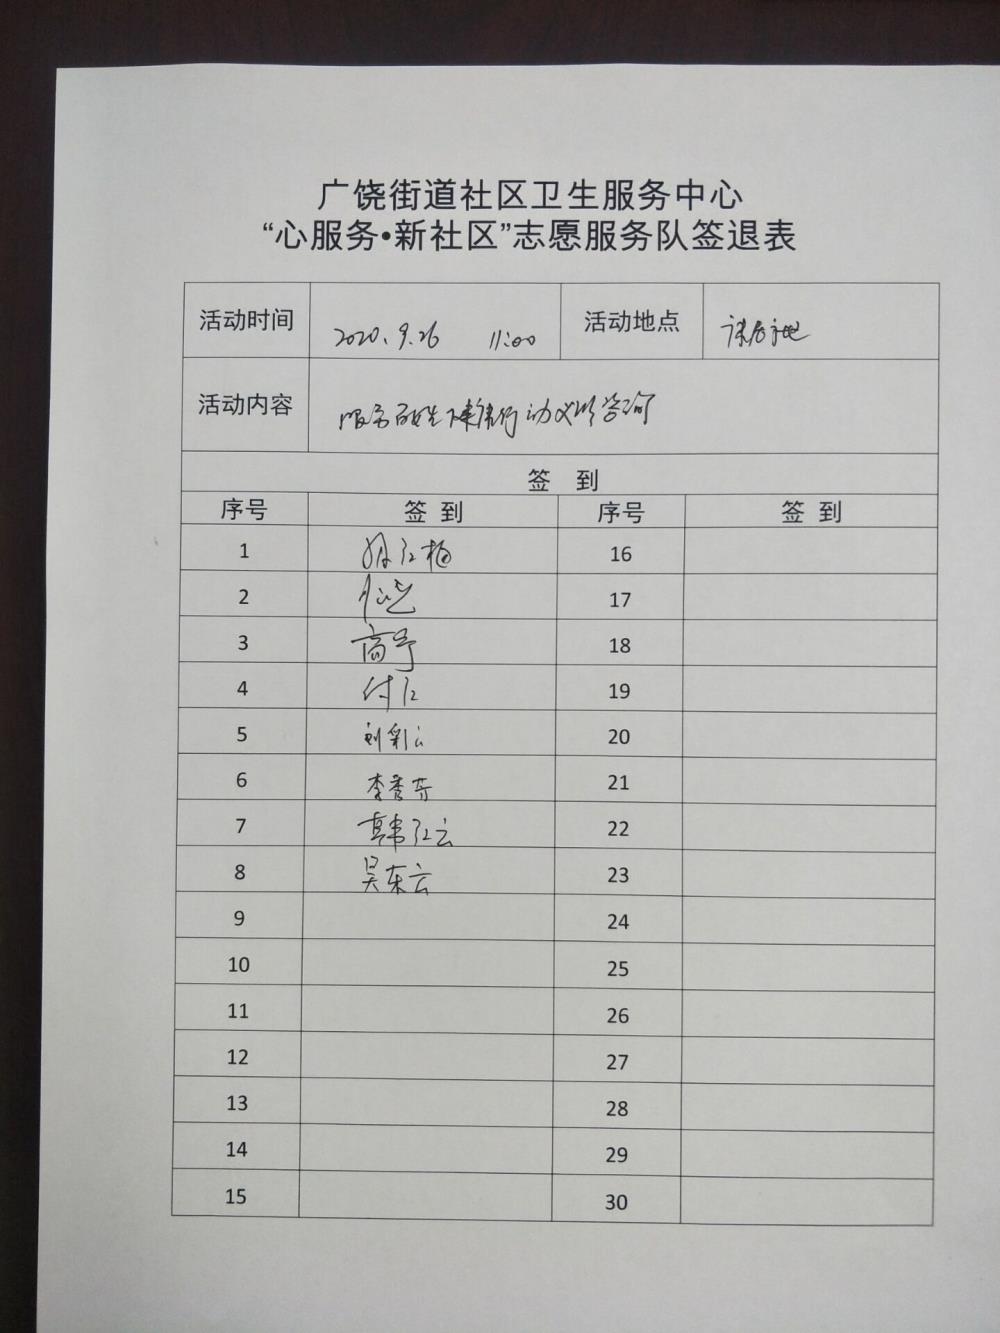 广饶街道社区卫生服务中心
“心服务•新社区”志愿服务队签退表
活动时间 2020.9.26 11:00 活动地点
活动内容 服务百姓健康行动义诊咨询
签 到
序号 签 到 序号 签 到
1 16
2 17
3 商 18
4 付红 19
5 刘彩云 20
6 李秀芬 21
7 韩红云 22
8 吴东云 23
9 24
10 25
11 26
12 27
13 28
14 29
15 30